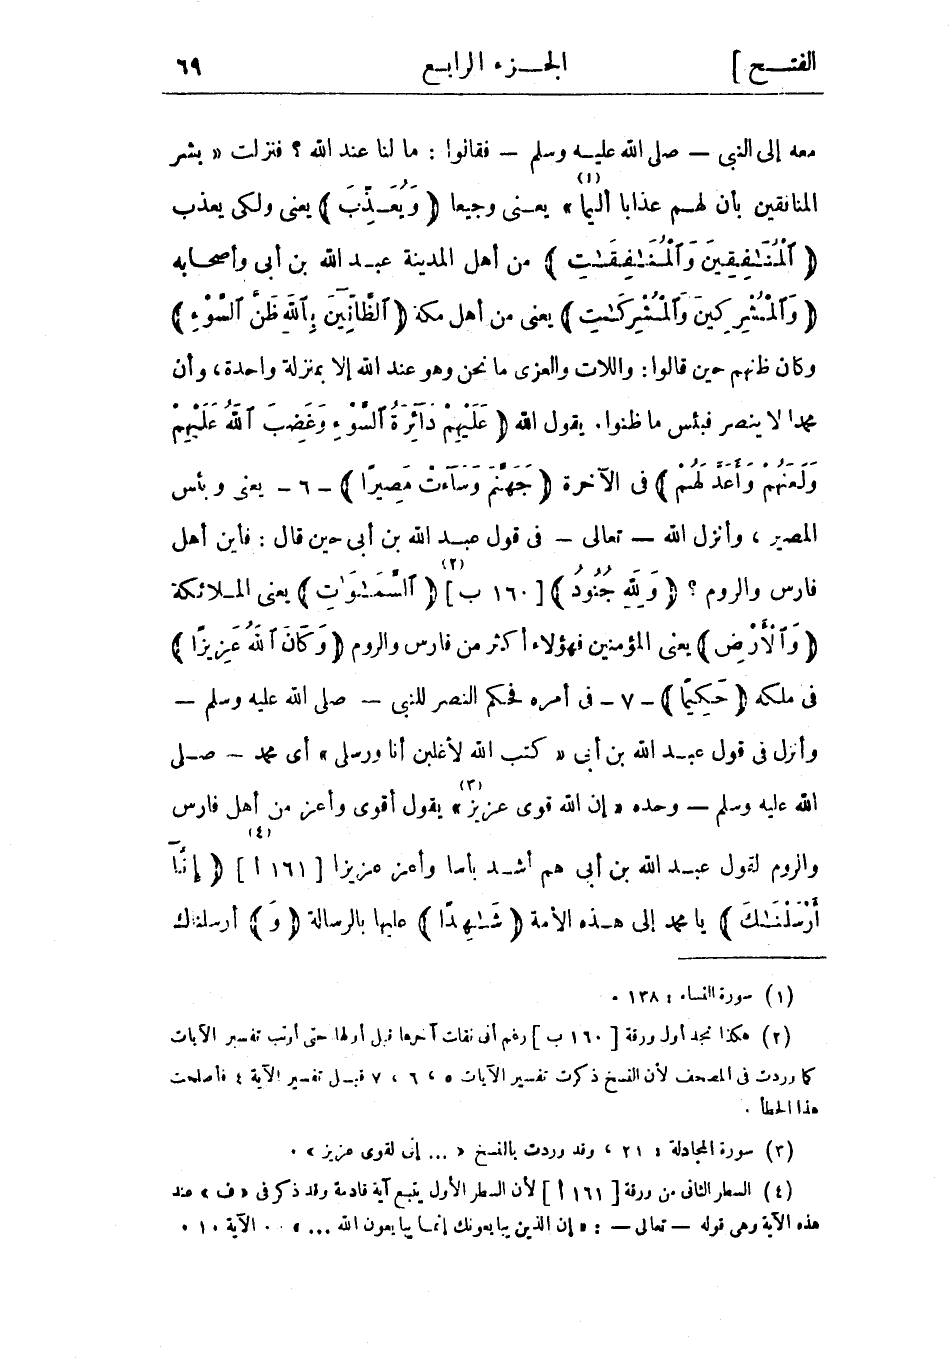 الفتـــح ]
الجـــزء الرابع
٦٩
معه إلى النبي — صلى الله عليـه وسلم — فقالوا : ما لنا عند الله ؟ فنزلت « بشر
المنافقين بأن لهـم عذابا أليما » (١) يعـنى وجيعا ﴿ وَيُعَـذِّبَ ﴾ يعنى ولكى يعذب
﴿ ٱلْمُنَـٰفِقِينَ وَٱلْمُنَـٰفِقَـٰتِ ﴾ من أهل المدينة عبـد الله بن أبى وأصحـابه
﴿ وَٱلْمُشْرِكِينَ وَٱلْمُشْرِكَـٰتِ ﴾ يعنى من أهل مكة ﴿ ٱلظَّآنِّينَ بِٱللَّهِ ظَنَّ ٱلسَّوْءِ ﴾
وكان ظنهم حين قالوا : واللات والعزى ما نحن وهو عند الله إلا بمنزلة واحدة ، وأن
محمدا لا ينصر فبئس ما ظنوا . يقول الله ﴿ عَلَيْهِمْ دَآئِرَةُ ٱلسَّوْءِ وَغَضِبَ ٱللَّهُ عَلَيْهِمْ
وَلَعَنَهُمْ وَأَعَدَّ لَهُمْ ﴾ فى الآخرة ﴿ جَهَنَّمَ وَسَآءَتْ مَصِيرًا ﴾ - ٦ - يعنى وبئس
المصير ، وأنزل الله — تعالى — فى قول عبـد الله بن أبى حين قال : فأين أهل
فارس والروم ؟ ﴿ وَلِلَّهِ جُنُودُ ﴾ [ ١٦٠ ب ] (٢) ﴿ ٱلسَّمَـٰوَٰتِ ﴾ يعنى المـلائكة
﴿ وَٱلْأَرْضِ ﴾ يعنى المؤمنين فهؤلاء أكثر من فارس والروم ﴿ وَكَانَ ٱللَّهُ عَزِيزًا ﴾
فى ملكه ﴿ حَكِيمًا ﴾ - ٧ - فى أمره فحكم النصر للنبى — صلى الله عليه وسلم —
وأنزل فى قول عبـد الله بن أبى « كتب الله لأغلبن أنا ورسلى » أى محمد — صـلى
الله عليه وسلم — وحده « إن الله قوى عزيز » (٣) يقول أقوى وأعز من أهل فارس
والروم لقول عبـد الله بن أبى هم أشـد بأسا وأعز عزيزا [ ١٦١ أ ] (٤) ﴿ إِنَّآ
أَرْسَلْنَـٰكَ ﴾ يا محمد إلى هـذه الأمة ﴿ شَـٰهِدًا ﴾ عليها بالرسالة ﴿ وَ ﴾ أرسلناك
(١) سورة النساء : ١٣٨ .
(٢) هكذا نجد أول ورقة [ ١٦٠ ب ] رغم أنى نقلت آخرها قبل أولها حتى أرتب تفسير الآيات
كما وردت فى المصحف لأن النسخ ذكرت تفسير الآيات ٥ ، ٦ ، ٧ قبـل تفسير الآية ٤ فأصلحت
هذا الخطأ .
(٣) سورة المجادلة : ٢١ ، وقد وردت بالنسخ « ... إنى لقوى عزيز » .
(٤) السطر الثانى من ورقة [ ١٦١ أ ] لأن السطر الأول يتبع آية قادمة وقد ذكر فى « ف » عند
هذه الآية وهى قوله — تعالى — : « إن الذين يبايعونك إنمـا يبايعون الله ... » ٠٠ الآية ١٠ .